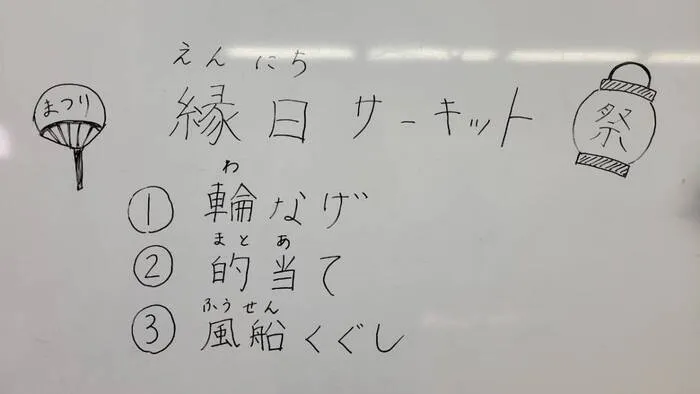 えんにち
まつり
縁日サーキット
祭
わ
① 輪なげ
まと あ
② 的当て
ふうせん
③ 風船くぐし